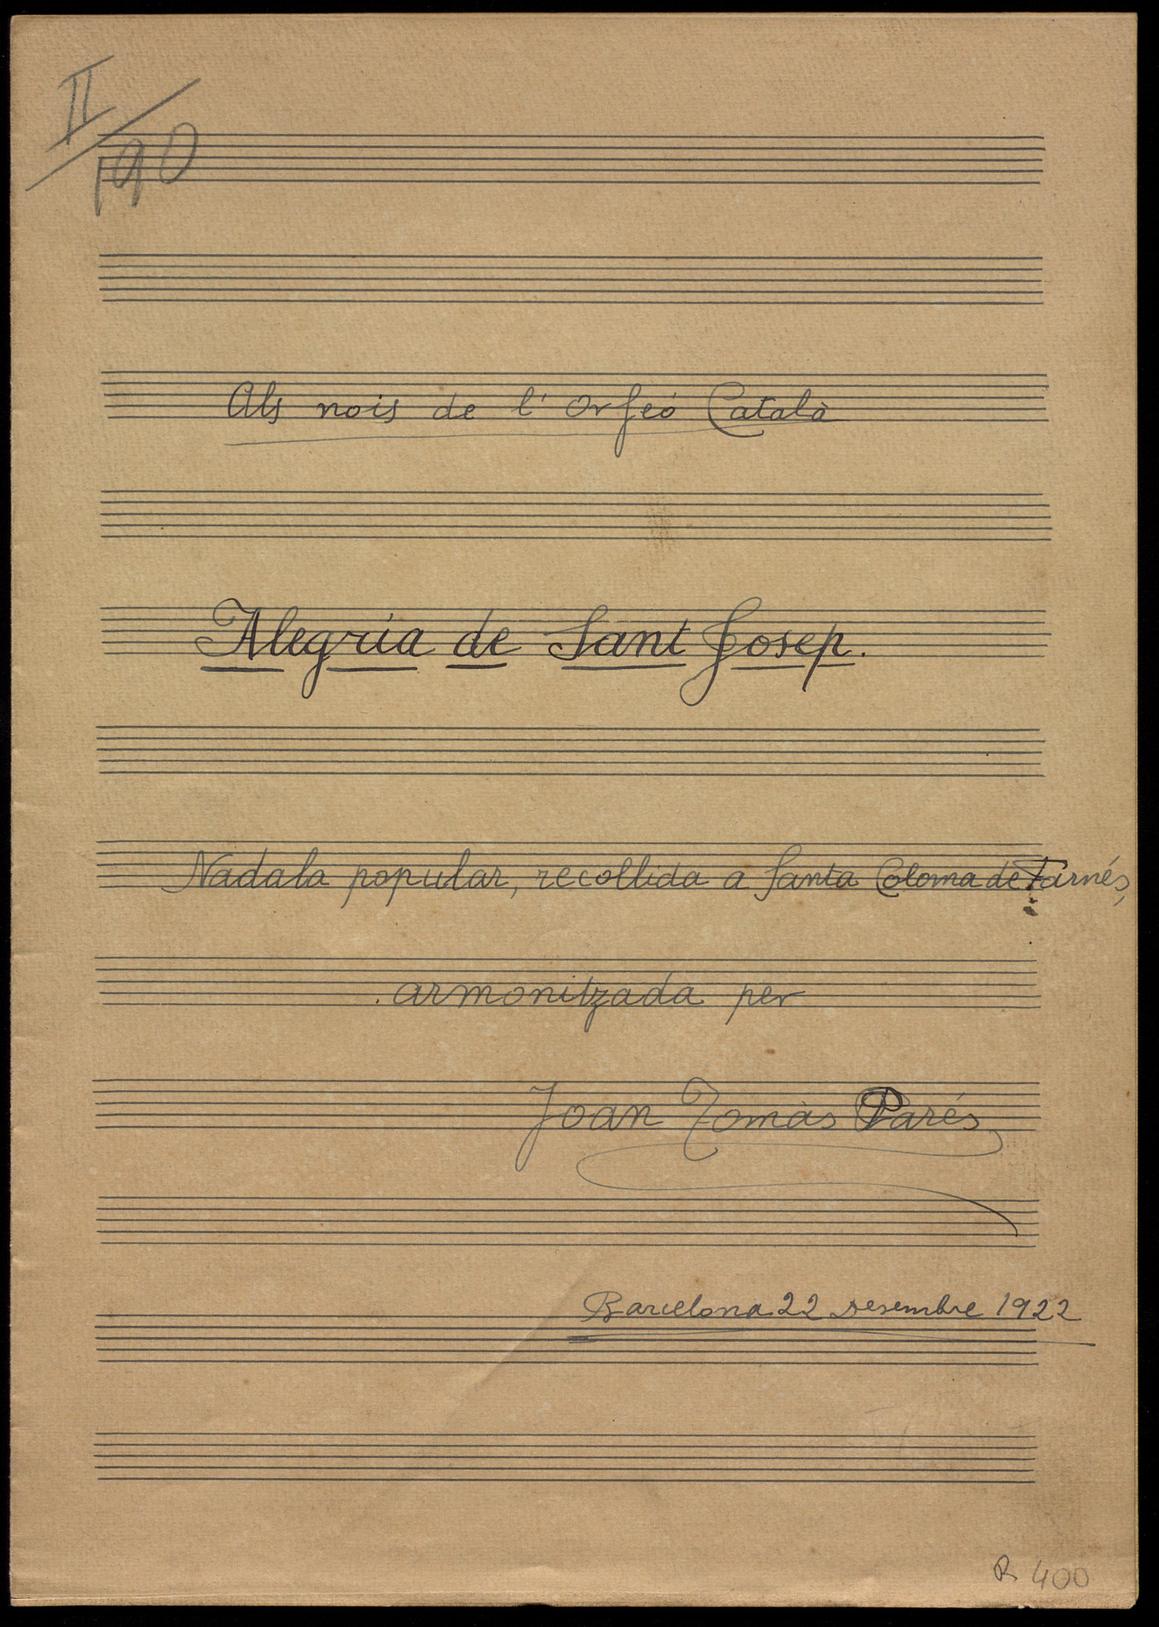 II
190
Als nois de l'Orfeó Català
Alegria de Sant Josep.
Nadala popular, recollida a Santa Coloma de Farnés,
armonitzada per
Joan Tomàs Parés
Barcelona 22 Desembre 1922
R. 400